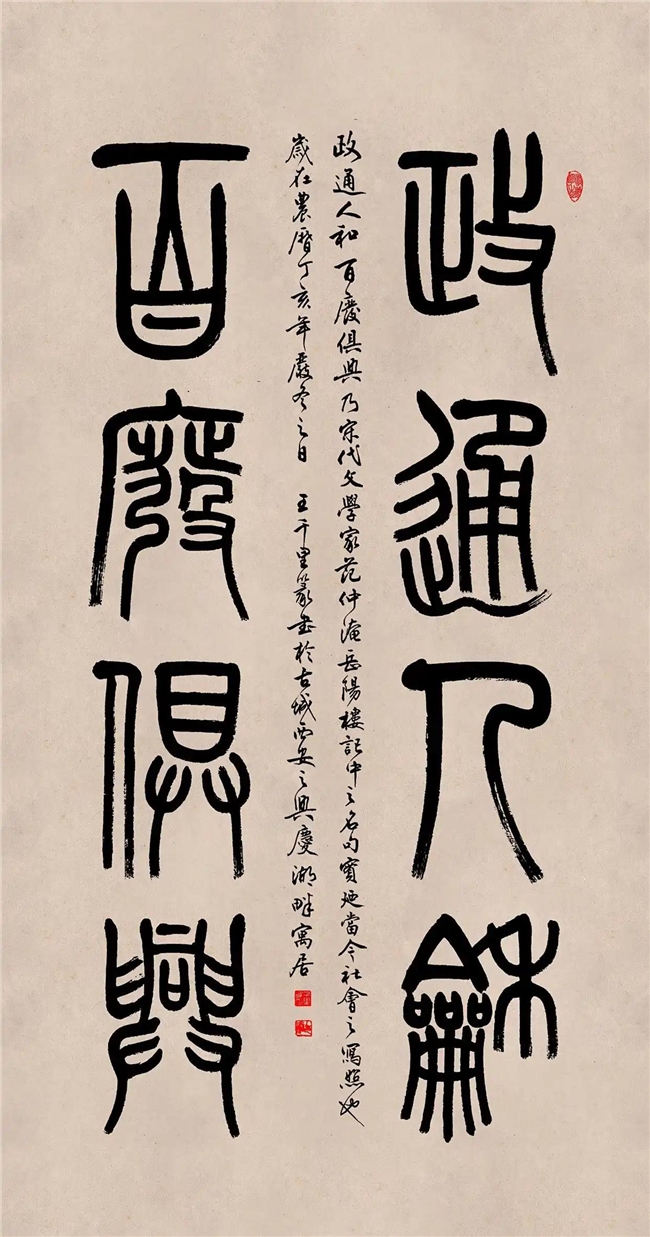 政通人龢
政通人和百廢俱興乃宋代文學家范仲淹岳陽樓記中之名句實迺當今社會之寫照也
歲在農曆丁亥年嚴冬之日 王千里篆書於古城西安之興慶湖畔寓居
百廢俱興